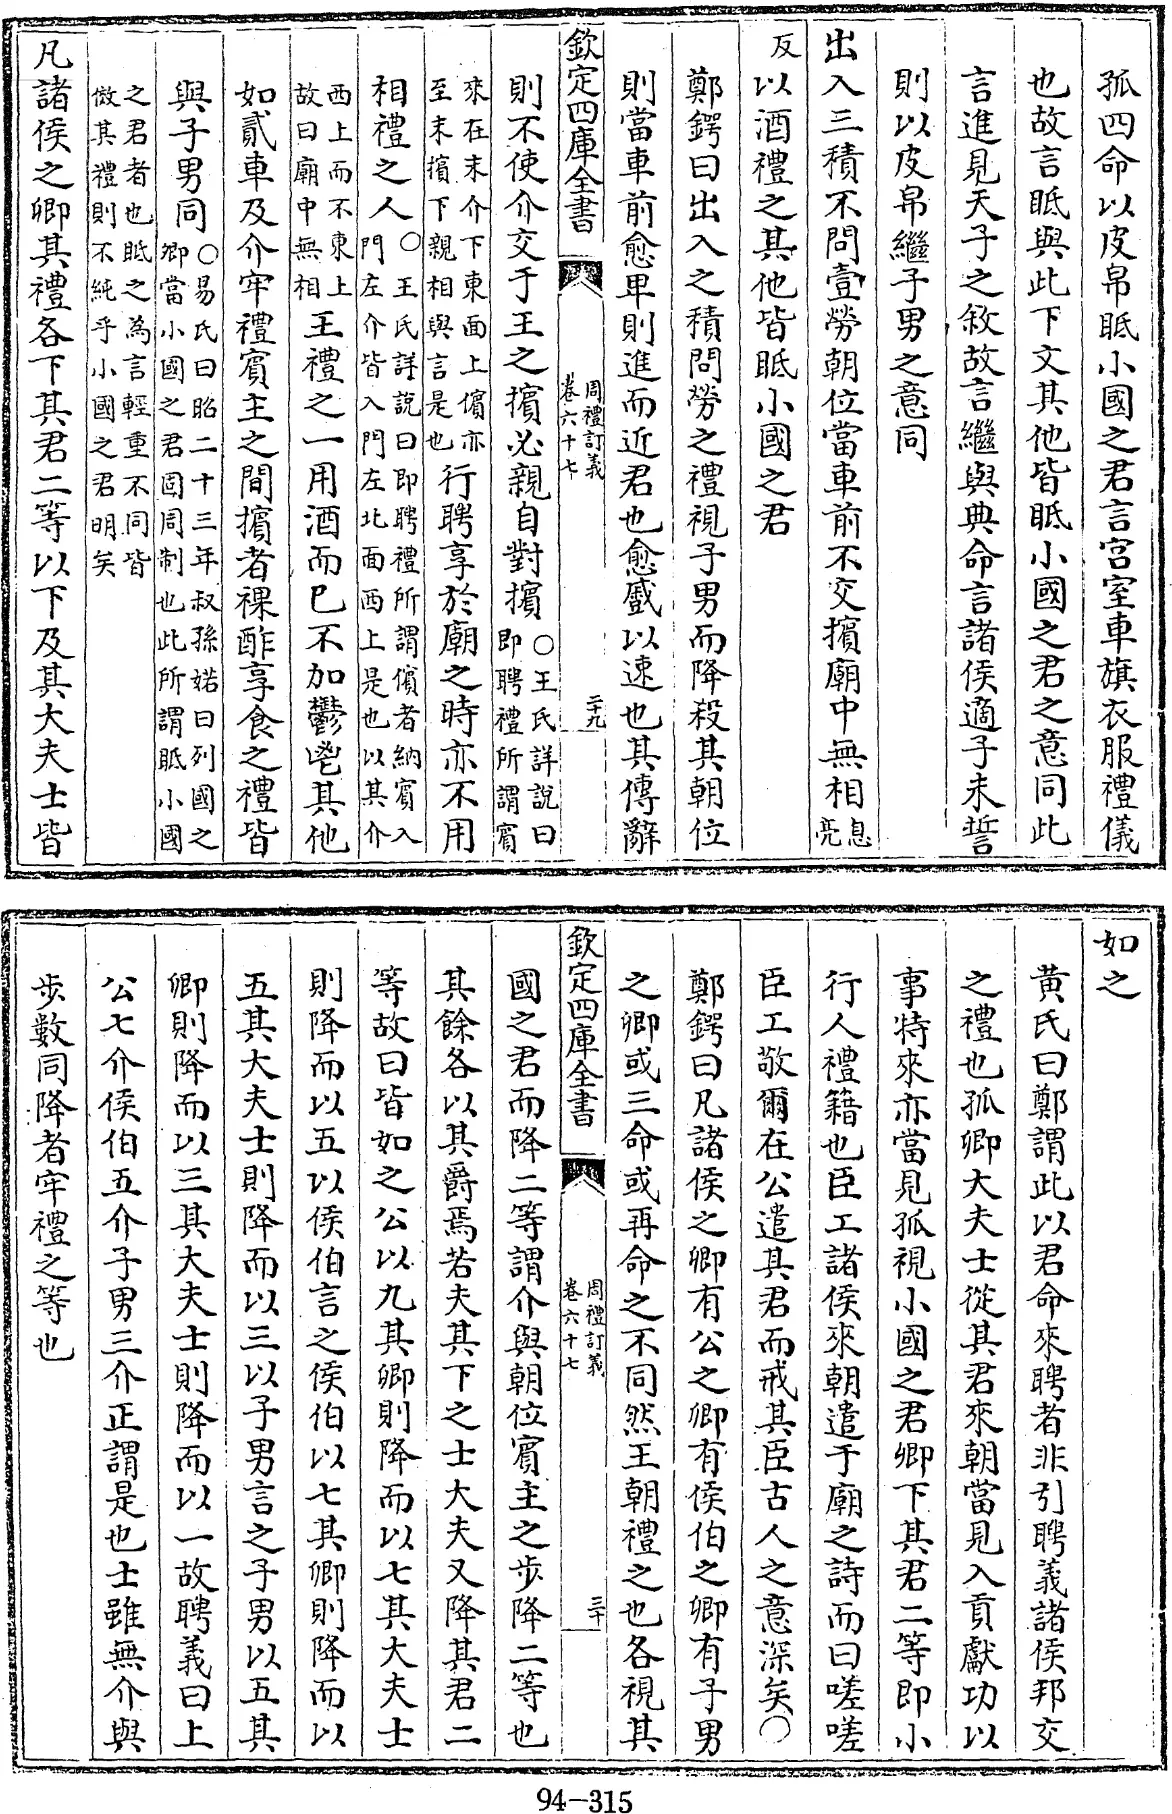 孤四命以皮帛眡小國之君言宫室車旗衣服禮儀
也故言眡與此下文其他皆眡小國之君之意同此
言進見天子之敘故言繼與典命言諸侯適子未誓
則以皮帛繼子男之意同
出入三積不問壹勞朝位當車前不交擯廟中無相息亮
反以酒禮之其他皆眡小國之君
鄭鍔曰出入之積問勞之禮視子男而降殺其朝位
則當車前愈卑則進而近君也愈蹙以速也其傳辭
欽定四庫全書
周禮訂義
卷六十七
二十九
則不使介交于王之擯必親自對擯○王氏詳說曰即聘禮所謂賓
來在末介下東面上儐亦至末擯下親相與言是也行聘享於廟之時亦不用
相禮之人○王氏詳說曰即聘禮所謂儐者納賓入門左介皆入門左北面西上是也以其介
西上而不東上故曰廟中無相王禮之一用酒而已不加鬱鬯其他
如貳車及介牢禮賓主之間擯者祼酢享食之禮皆
與子男同○易氏曰昭二十三年叔孫婼曰列國之卿當小國之君固同制也此所謂眡小國
之君者也眡之為言輕重不同皆倣其禮則不純乎小國之君明矣
凡諸侯之卿其禮各下其君二等以下及其大夫士皆
如之
黄氏曰鄭謂此以君命來聘者非引聘義諸侯邦交
之禮也孤卿大夫士從其君來朝當見入貢獻功以
事特來亦當見孤視小國之君卿下其君二等即小
行人禮籍也臣工諸侯來朝遣于廟之詩而曰嗟嗟
臣工敬爾在公遣其君而戒其臣古人之意深矣○
鄭鍔曰凡諸侯之卿有公之卿有侯伯之卿有子男
之卿或三命或再命之不同然王朝禮之也各視其
欽定四庫全書
周禮訂義
卷六十七
三十
國之君而降二等謂介與朝位賓主之步降二等也
其餘各以其爵焉若夫其下之士大夫又降其君二
等故曰皆如之公以九其卿則降而以七其大夫士
則降而以五以侯伯言之侯伯以七其卿則降而以
五其大夫士則降而以三以子男言之子男以五其
卿則降而以三其大夫士則降而以一故聘義曰上
公七介侯伯五介子男三介正謂是也士雖無介與
步數同降者牢禮之等也
94-315